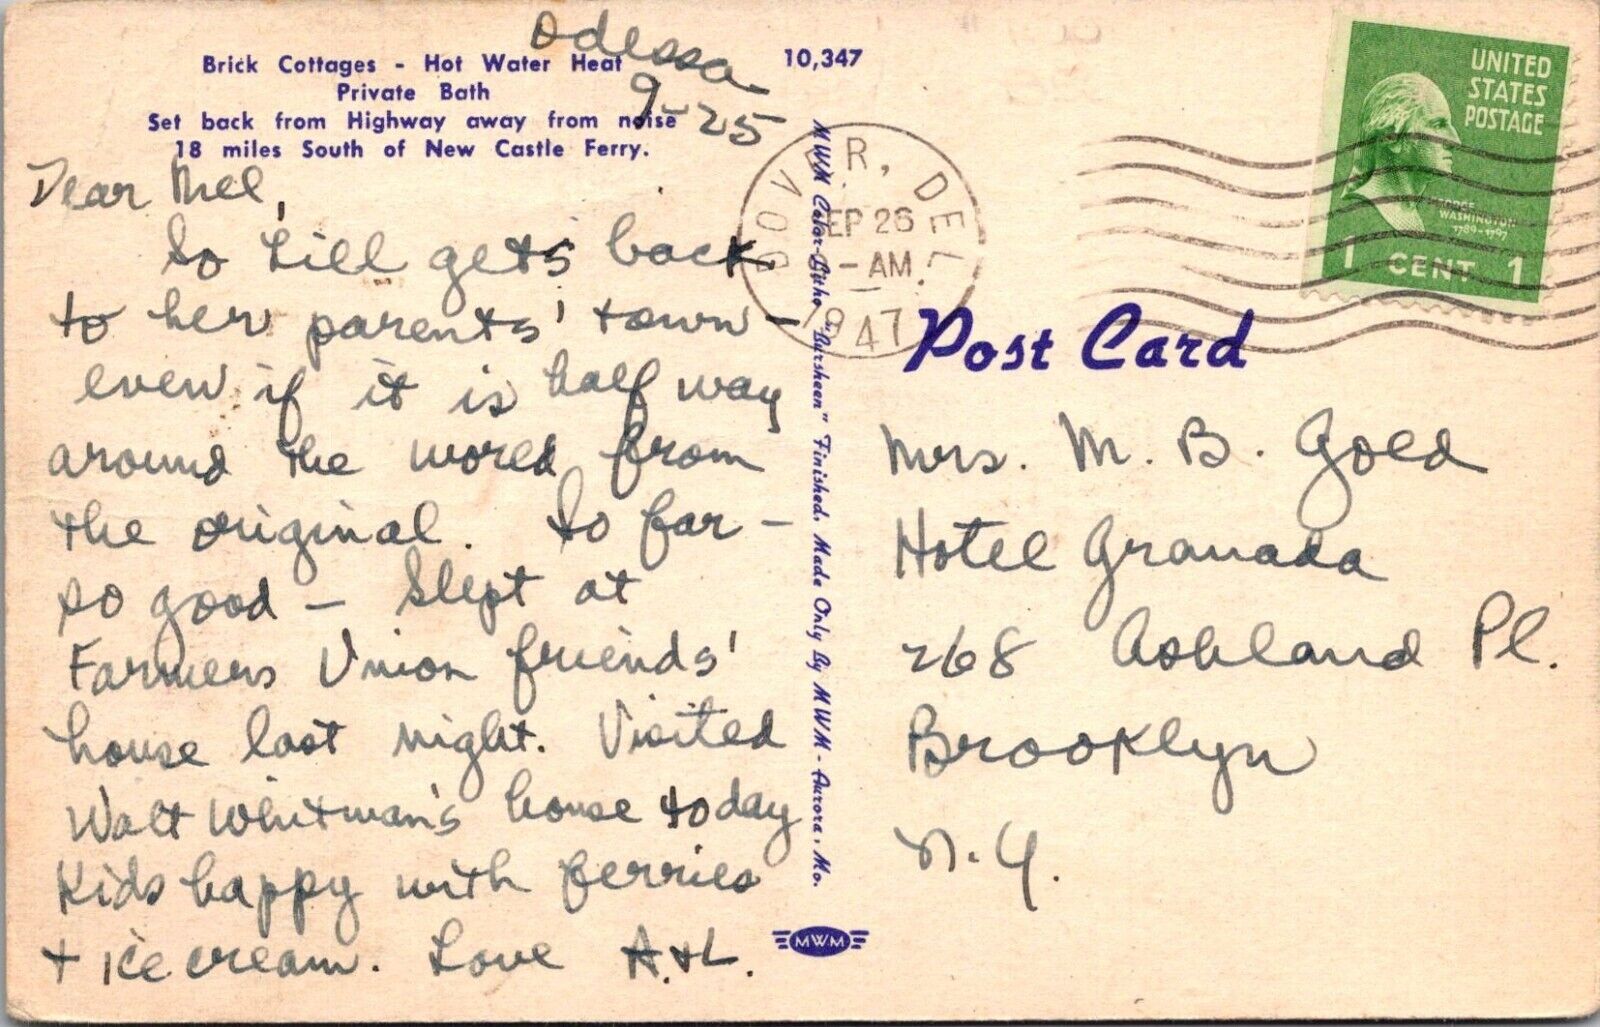 Odessa
9-25
Brick Cottages - Hot Water Heat
Private Bath
Set back from Highway away from noise
18 miles South of New Castle Ferry.
10,347
Dear Mel,
So Lill gets back
to her parents' town -
even if it is half way
around the world from
the original. So far -
so good - Slept at
Farmers Union friends'
house last night. Visited
Walt Whitman's house today
Kids happy with ferries
+ ice cream. Love A.+L.
MWM Color-Litho "Bursheen" Finished. Made Only By MWM - Aurora, Mo.
MWM
DOVER, DEL.
SEP 26
- AM
1947
UNITED
STATES
POSTAGE
GEORGE
WASHINGTON
1789-1797
1 CENT 1
Post Card
Mrs. M. B. Gold
Hotel Granada
268 Ashland Pl.
Brooklyn
N.Y.